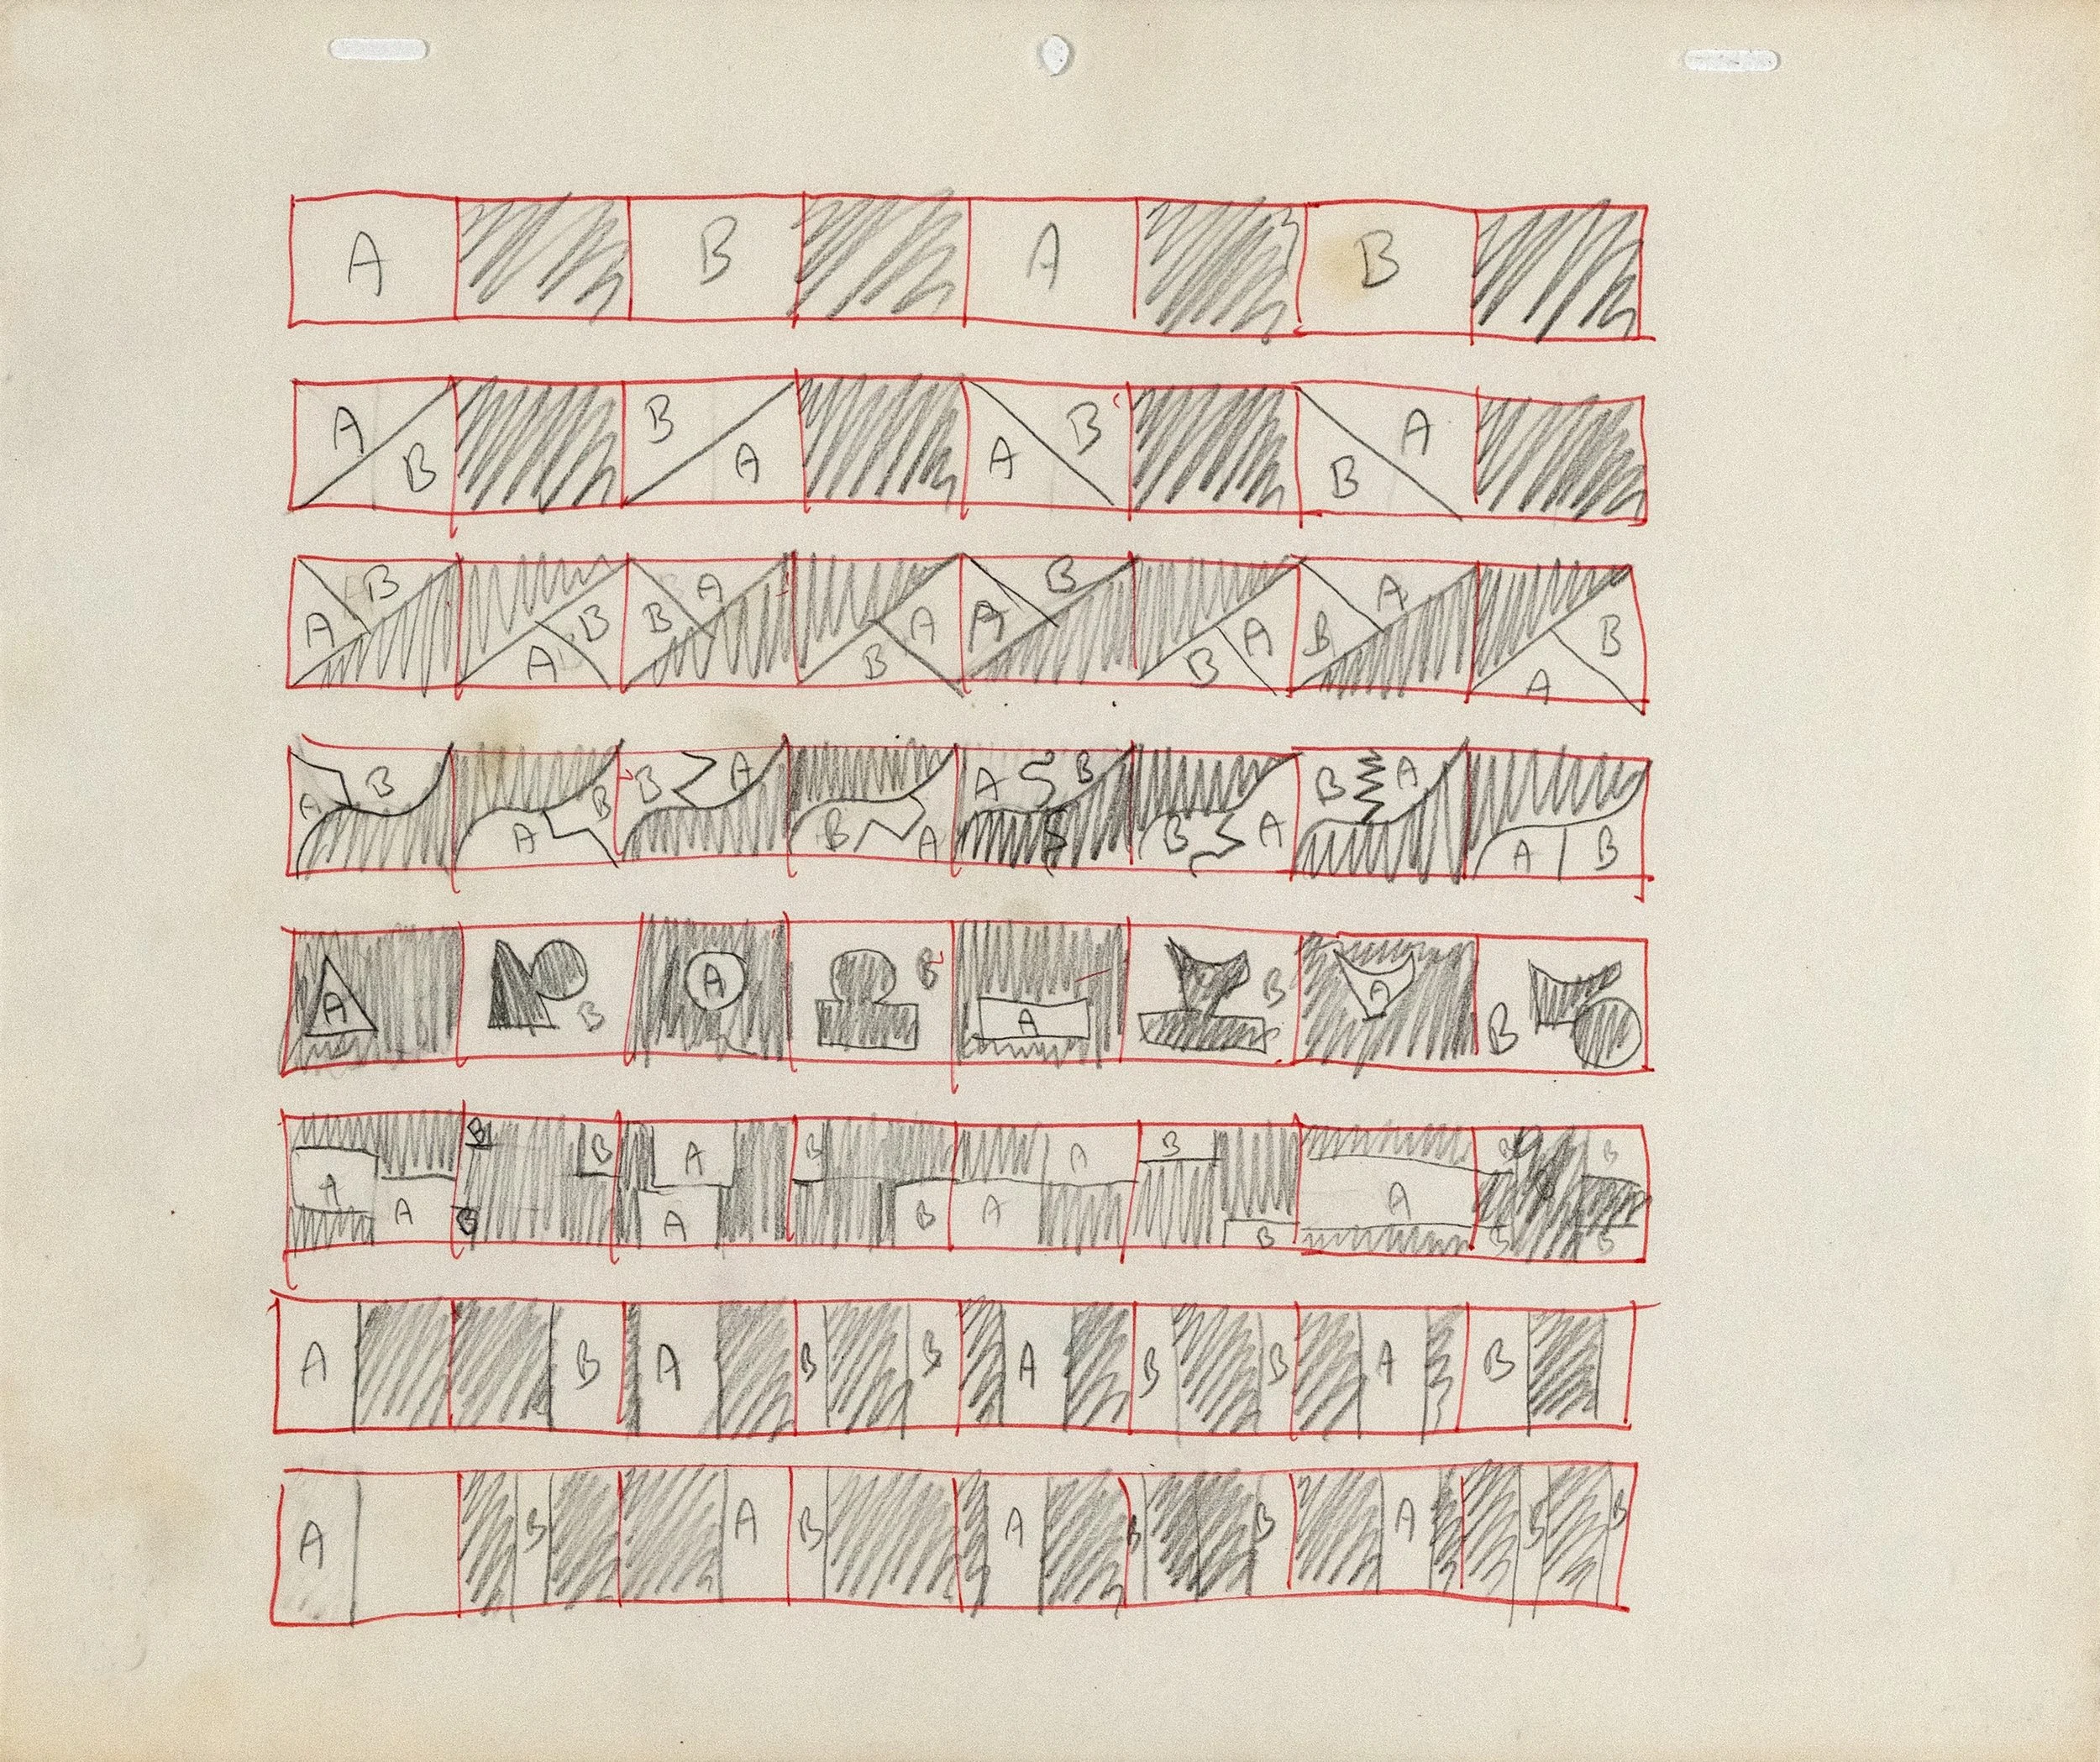 A B A B
A B B A A B B A
A B A B B A B A A B B A B A A B
A B A B B A B A A B B A B A A B
A B A B A B A B
A A B B B A A B B A A B B A B B B B
A B A B B A B B A B
A B A B A B B A B B